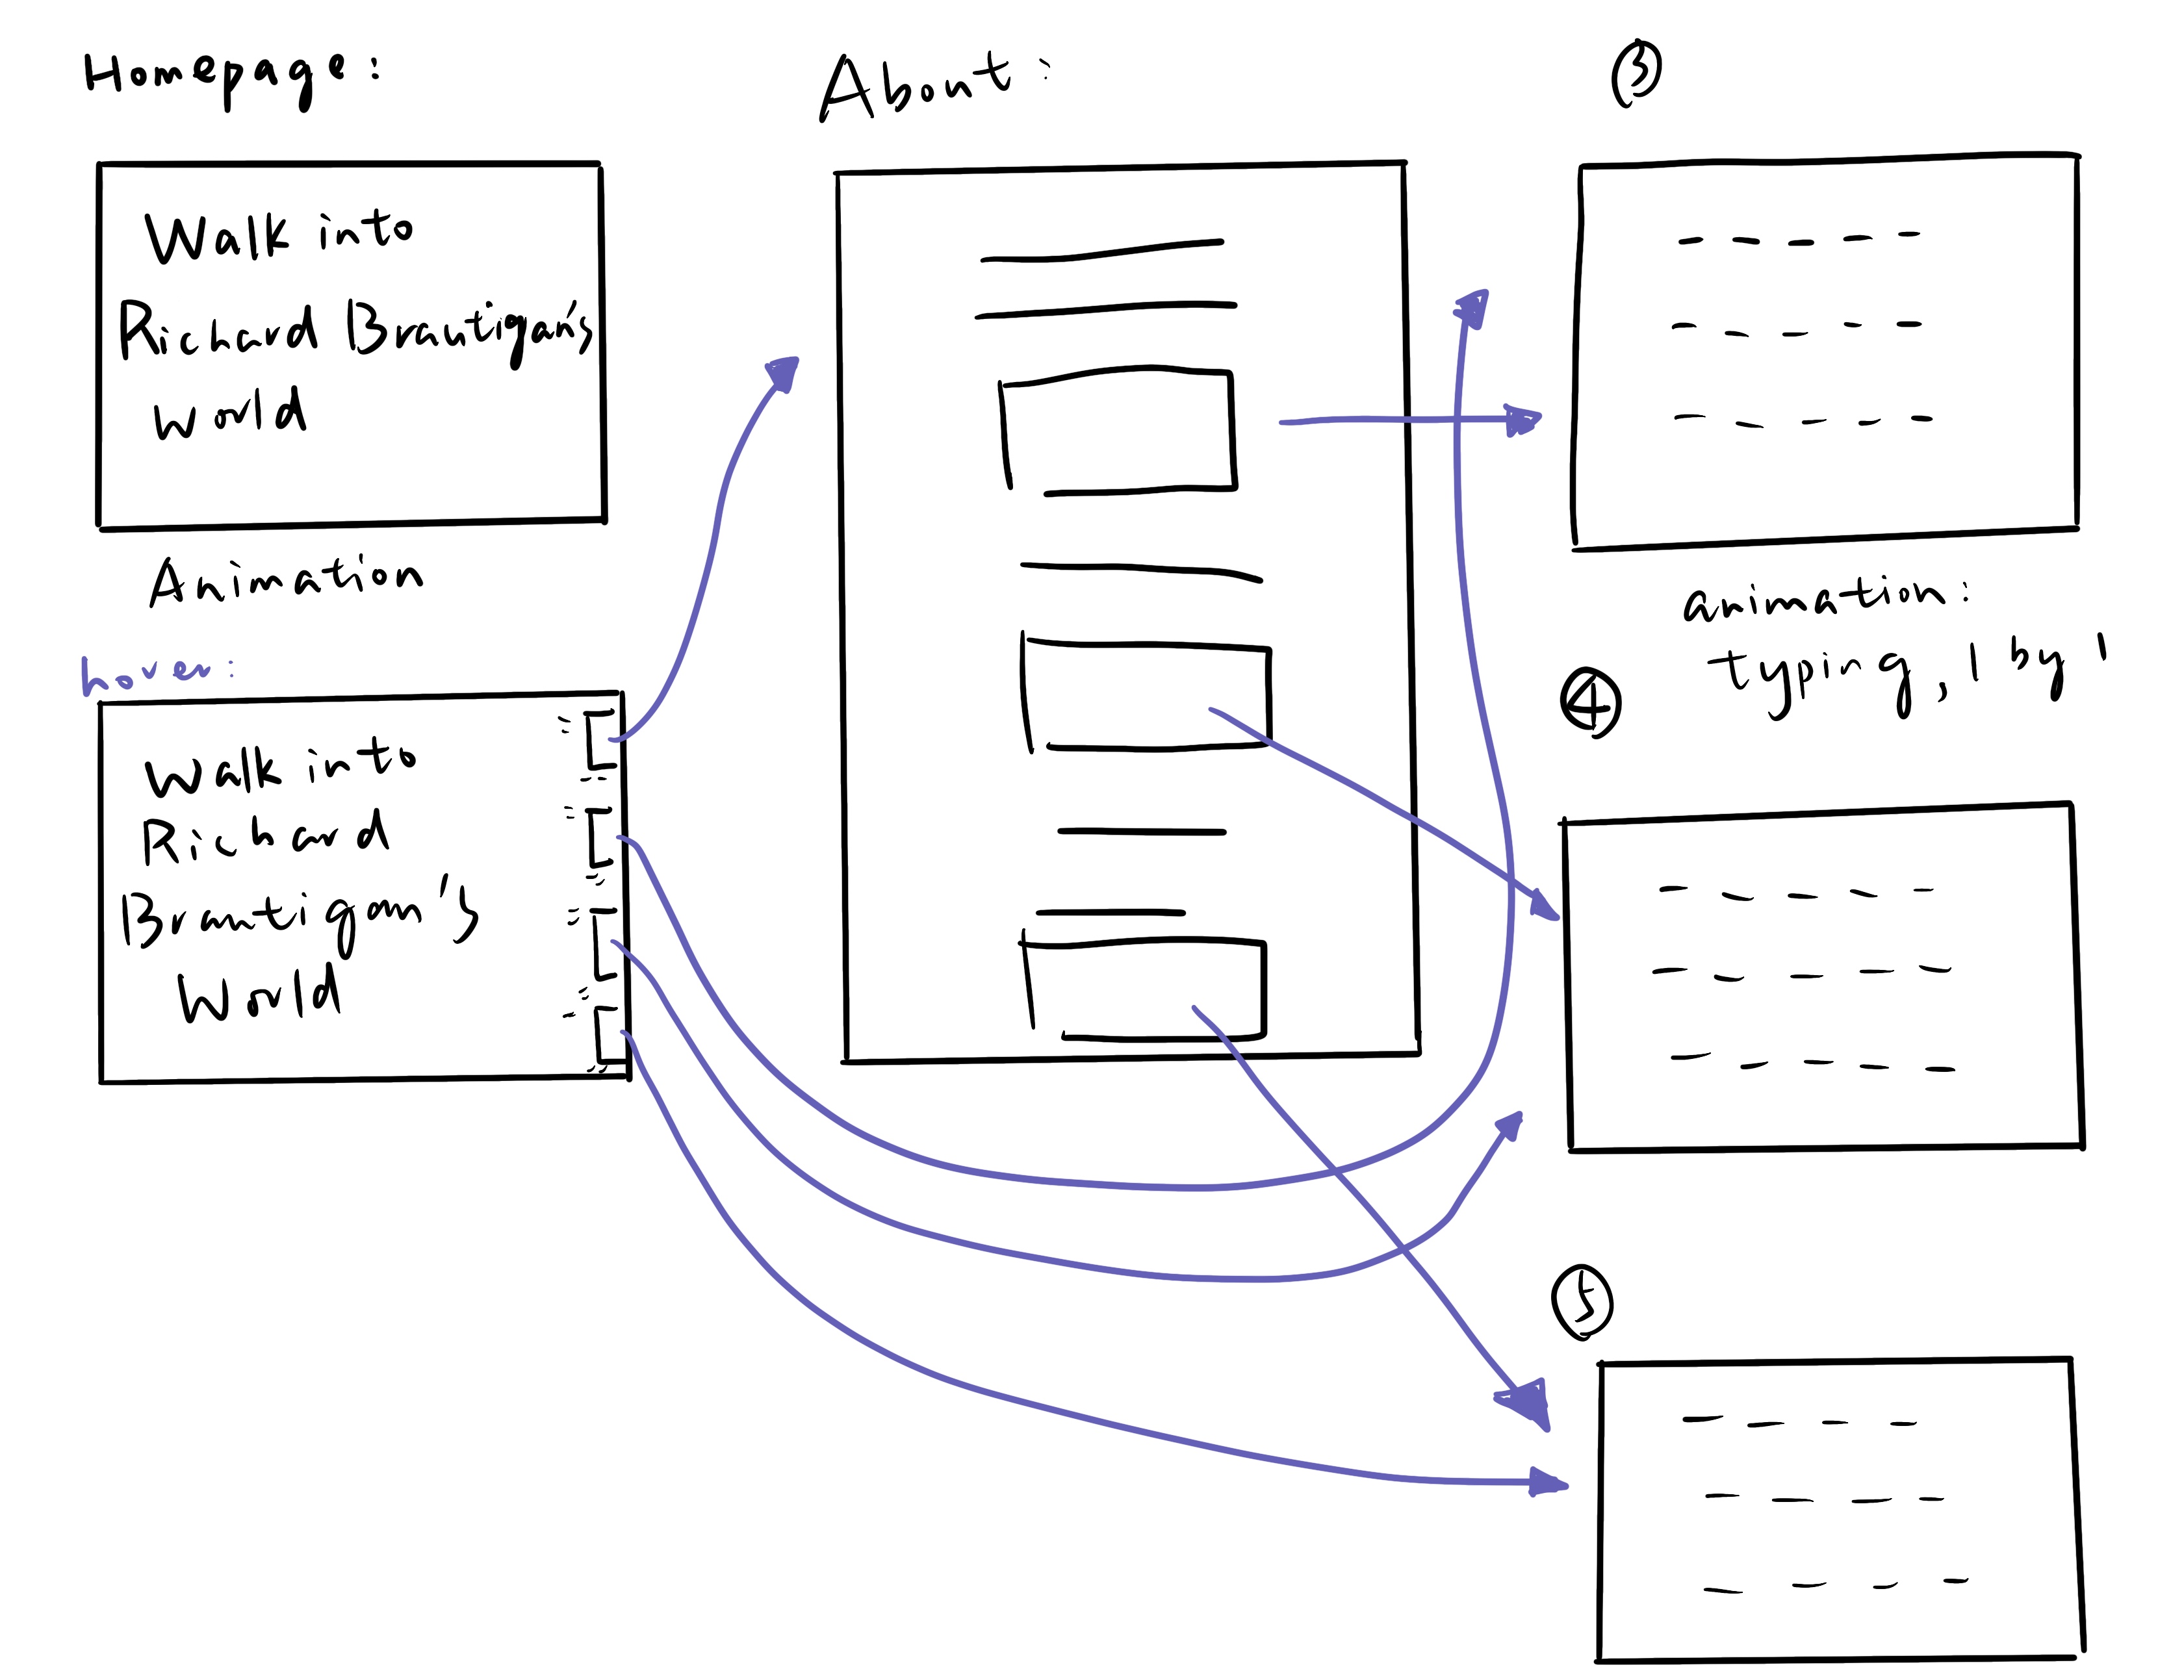 Homepage:
Walk into
Richard Brautigan's
world
Animation
hover:
Walk into
Richard
Brautigan's
World
About:
3
animation:
typing, 1 by 1
4
5